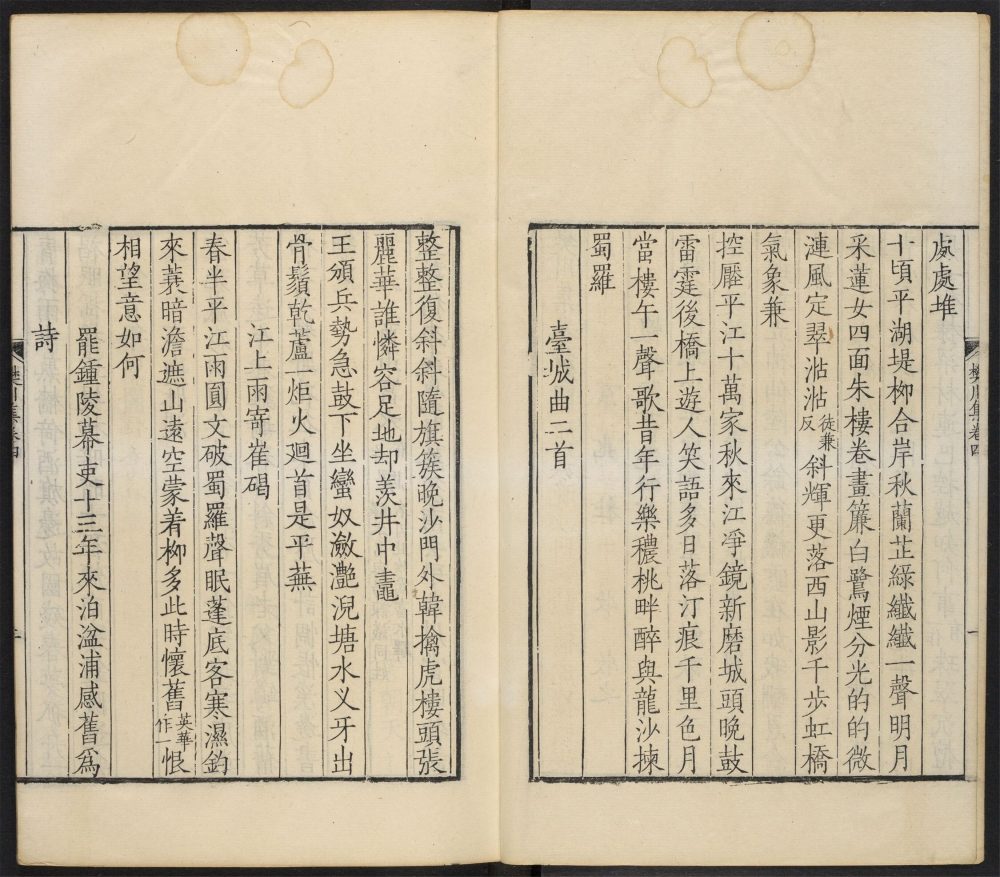 樊川集卷四
一
處處堆
十頃平湖堤柳合岸秋蘭芷綠纖纖一聲明月
采蓮女四面朱樓卷畫簾白鷺煙分光的的微
漣風定翠㶑㶑徒兼反斜輝更落西山影千步虹橋
氣象兼
控壓平江十萬家秋來江淨鏡新磨城頭晚鼓
雷霆後橋上遊人笑語多日落汀痕千里色月
當樓午一聲歌昔年行樂穠桃畔醉與龍沙揀
蜀羅
臺城曲二首
整整復斜斜隨旗簇晚沙門外韓擒虎樓頭張
麗華誰憐容足地却羨井中鼃
王頒兵勢急鼓下坐蠻奴瀲灩淣塘水义牙出
骨鬚乾蘆一炬火廻首是平蕪
江上雨寄崔碣
春半平江雨圓文破蜀羅聲眠蓬底客寒濕釣
來蓑暗澹遮山遠空蒙着柳多此時懷舊英華作一恨
相望意如何
罷鍾陵幕吏十三年來泊湓浦感舊爲
詩
樊川集卷四